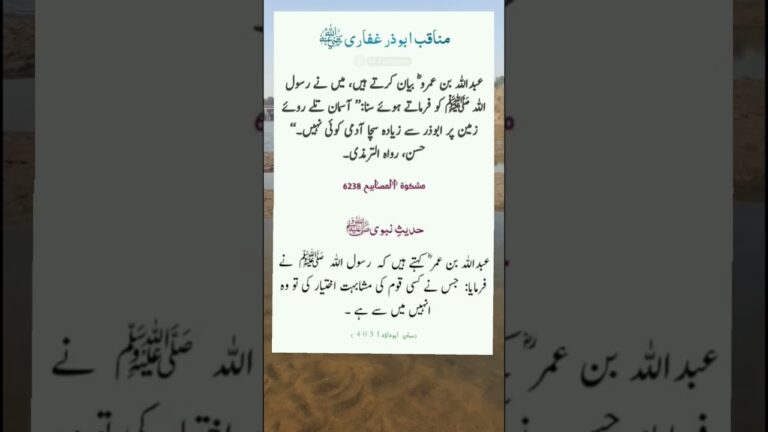 مناقب ابوذر غفاری رضی اللہ عنہ
عبداللہ بن عمروؓ بیان کرتے ہیں، میں نے رسول
اللہ ﷺ کو فرماتے ہوئے سنا:” آسمان تلے روئے
زمین پر ابوذر سے زیادہ سچا آدمی کوئی نہیں۔“
حسن، رواہ الترمذی۔
مشکوٰۃ المصابیح 6238
حدیثِ نبوی ﷺ
عبداللہ بن عمرؓ کہتے ہیں کہ رسول اللہ ﷺ نے
فرمایا: جس نے کسی قوم کی مشابہت اختیار کی تو وہ
انہیں میں سے ہے ۔
(سنن ابوداؤد 4031)
عبداللہ بن عمرؓ
اللہ ﷺ نے